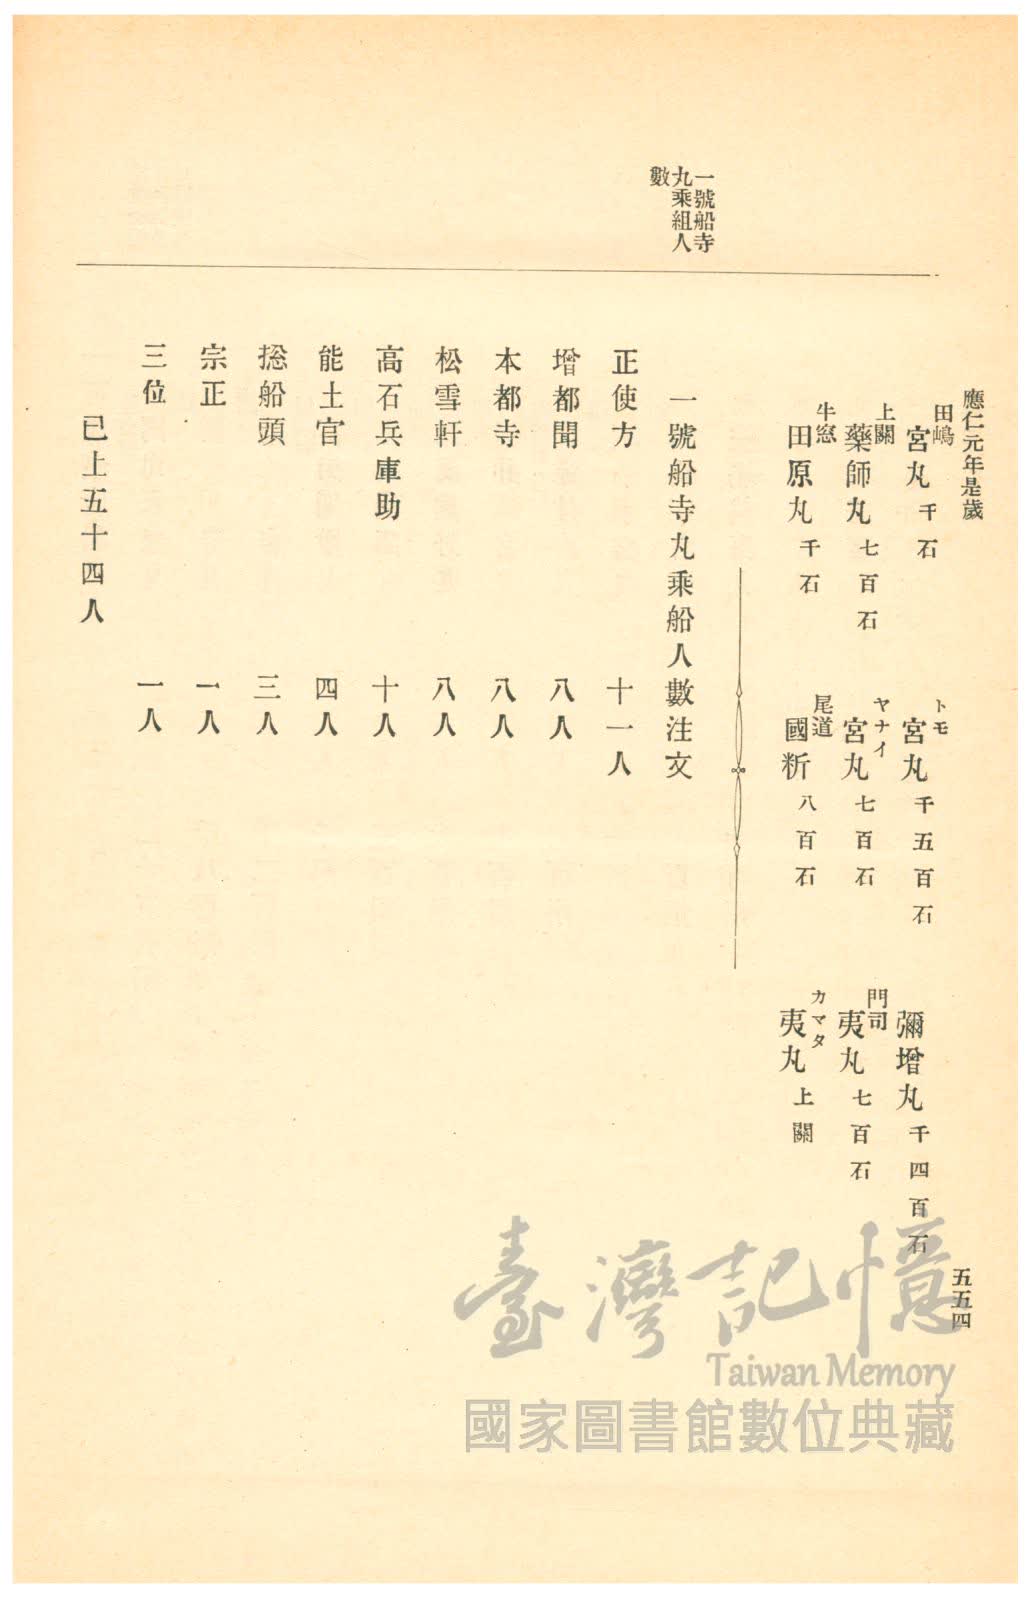 應仁元年是歲
田嶋
宮丸 千石
トモ
宮丸 千五百石
彌増丸 千四百石
上關
藥師丸 七百石
ヤナイ
宮丸 七百石
門司
夷丸 七百石
牛窓
田原丸 千石
尾道
國料 八百石
カマタ
夷丸 上關
五五四
一號船寺
丸乘組人
數
一號船寺丸乘船人數注文
正使方 十一人
増都聞 八人
本都寺 八人
松雪軒 八人
高石兵庫助 十人
能土官 四人
捴船頭 三人
宗正 一人
三位 一人
已上五十四人
臺灣記憶
Taiwan Memory
國家圖書館數位典藏